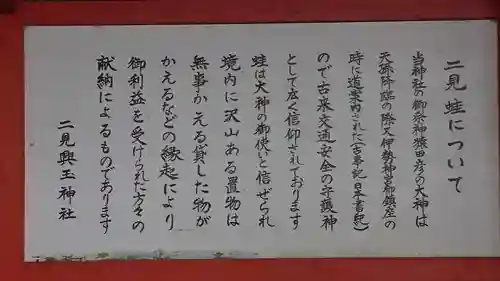 二見蛙について
当神社の御祭神猿田彦の大神は
天孫降臨の際又伊勢神宮御鎮座の
時に道案内された(古事記日本書紀)
ので古来交通安全の守護神
として広く信仰されております
蛙は大神の御使いと信ぜられ
境内に沢山ある置物は
無事かえる貸した物が
かえるなどの縁起により
御利益を受けられた方々の
献納によるものであります
二見興玉神社